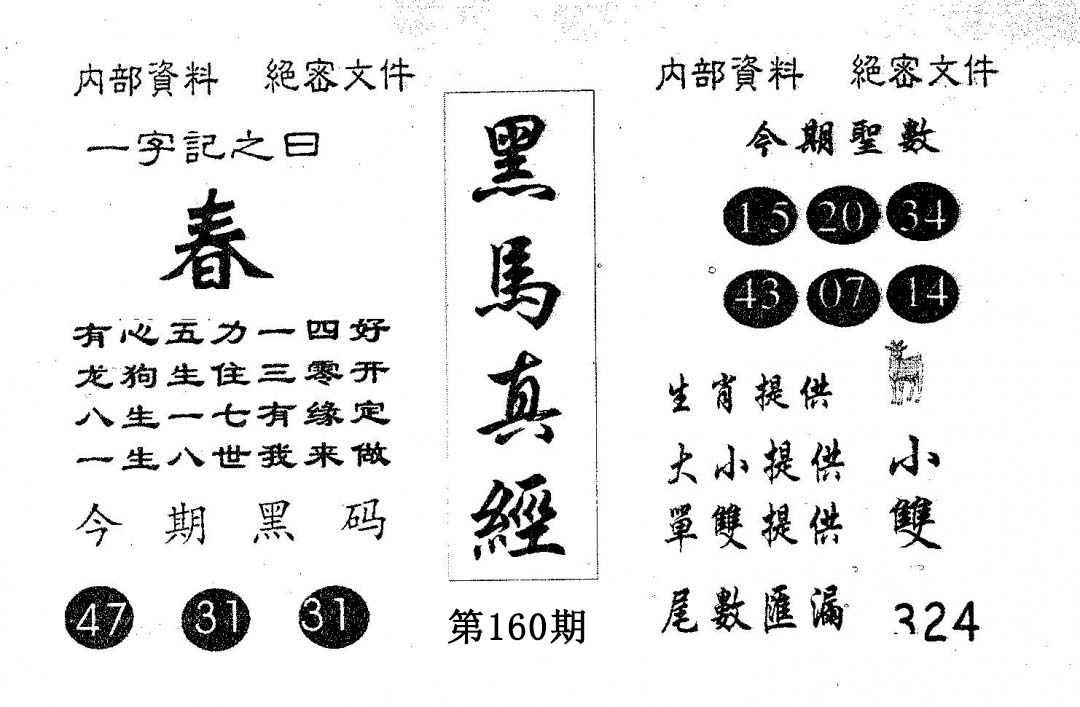 内部資料 絕密文件
一字記之曰
春
有心五力一四好
龙狗生住三零开
八生一七有缘定
一生八世我来做
今期黑码
47 31 31
黑馬真經
第160期
内部資料 絕密文件
今期聖數
15 20 34
43 07 14
生肖提供
大小提供 小
單雙提供 雙
尾數匯漏 324